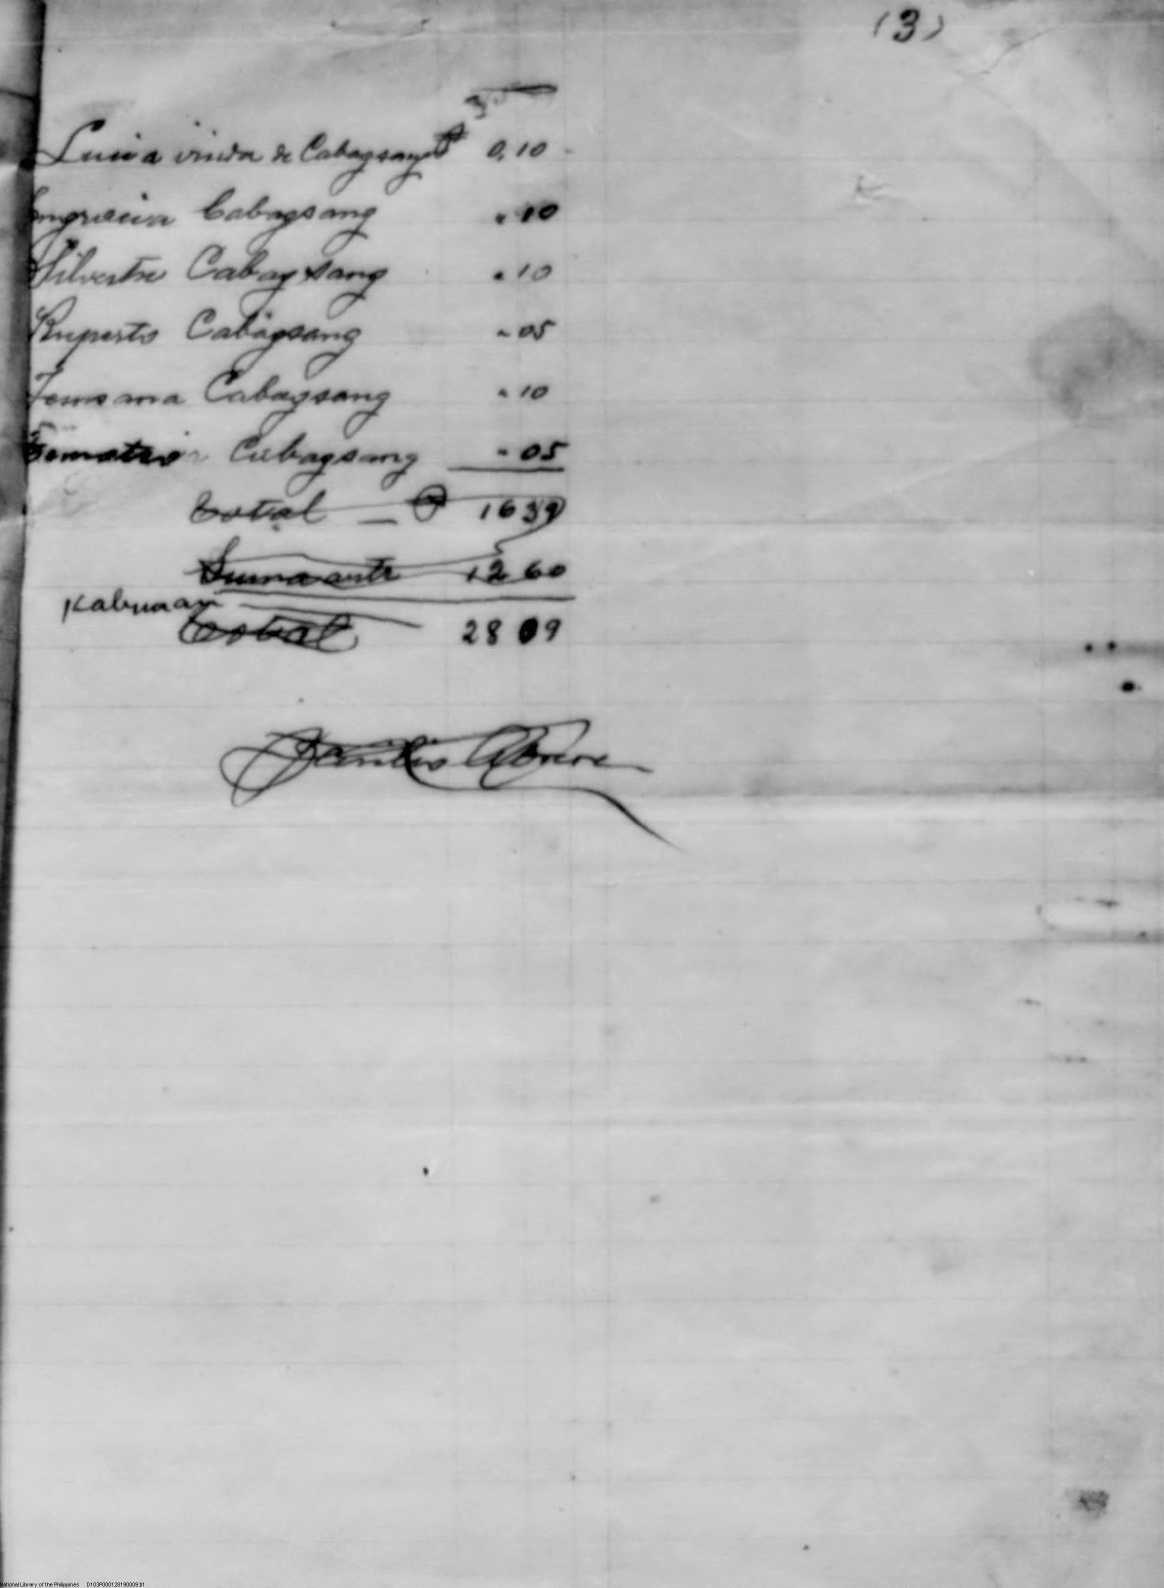 (3)
Lucia viuda de Cabagsang ₱ 0.10
Engracia Cabagsang " 10
Silvestre Cabagsang " 10
Ruperto Cabagsang " 05
Cabagsang " 10
Cabagsang " 05
Total — ₱ 16 39
Suma ante 12 60
Kabuuan
Total 28 09
National Library of the Philippines D103P000128190009.tif